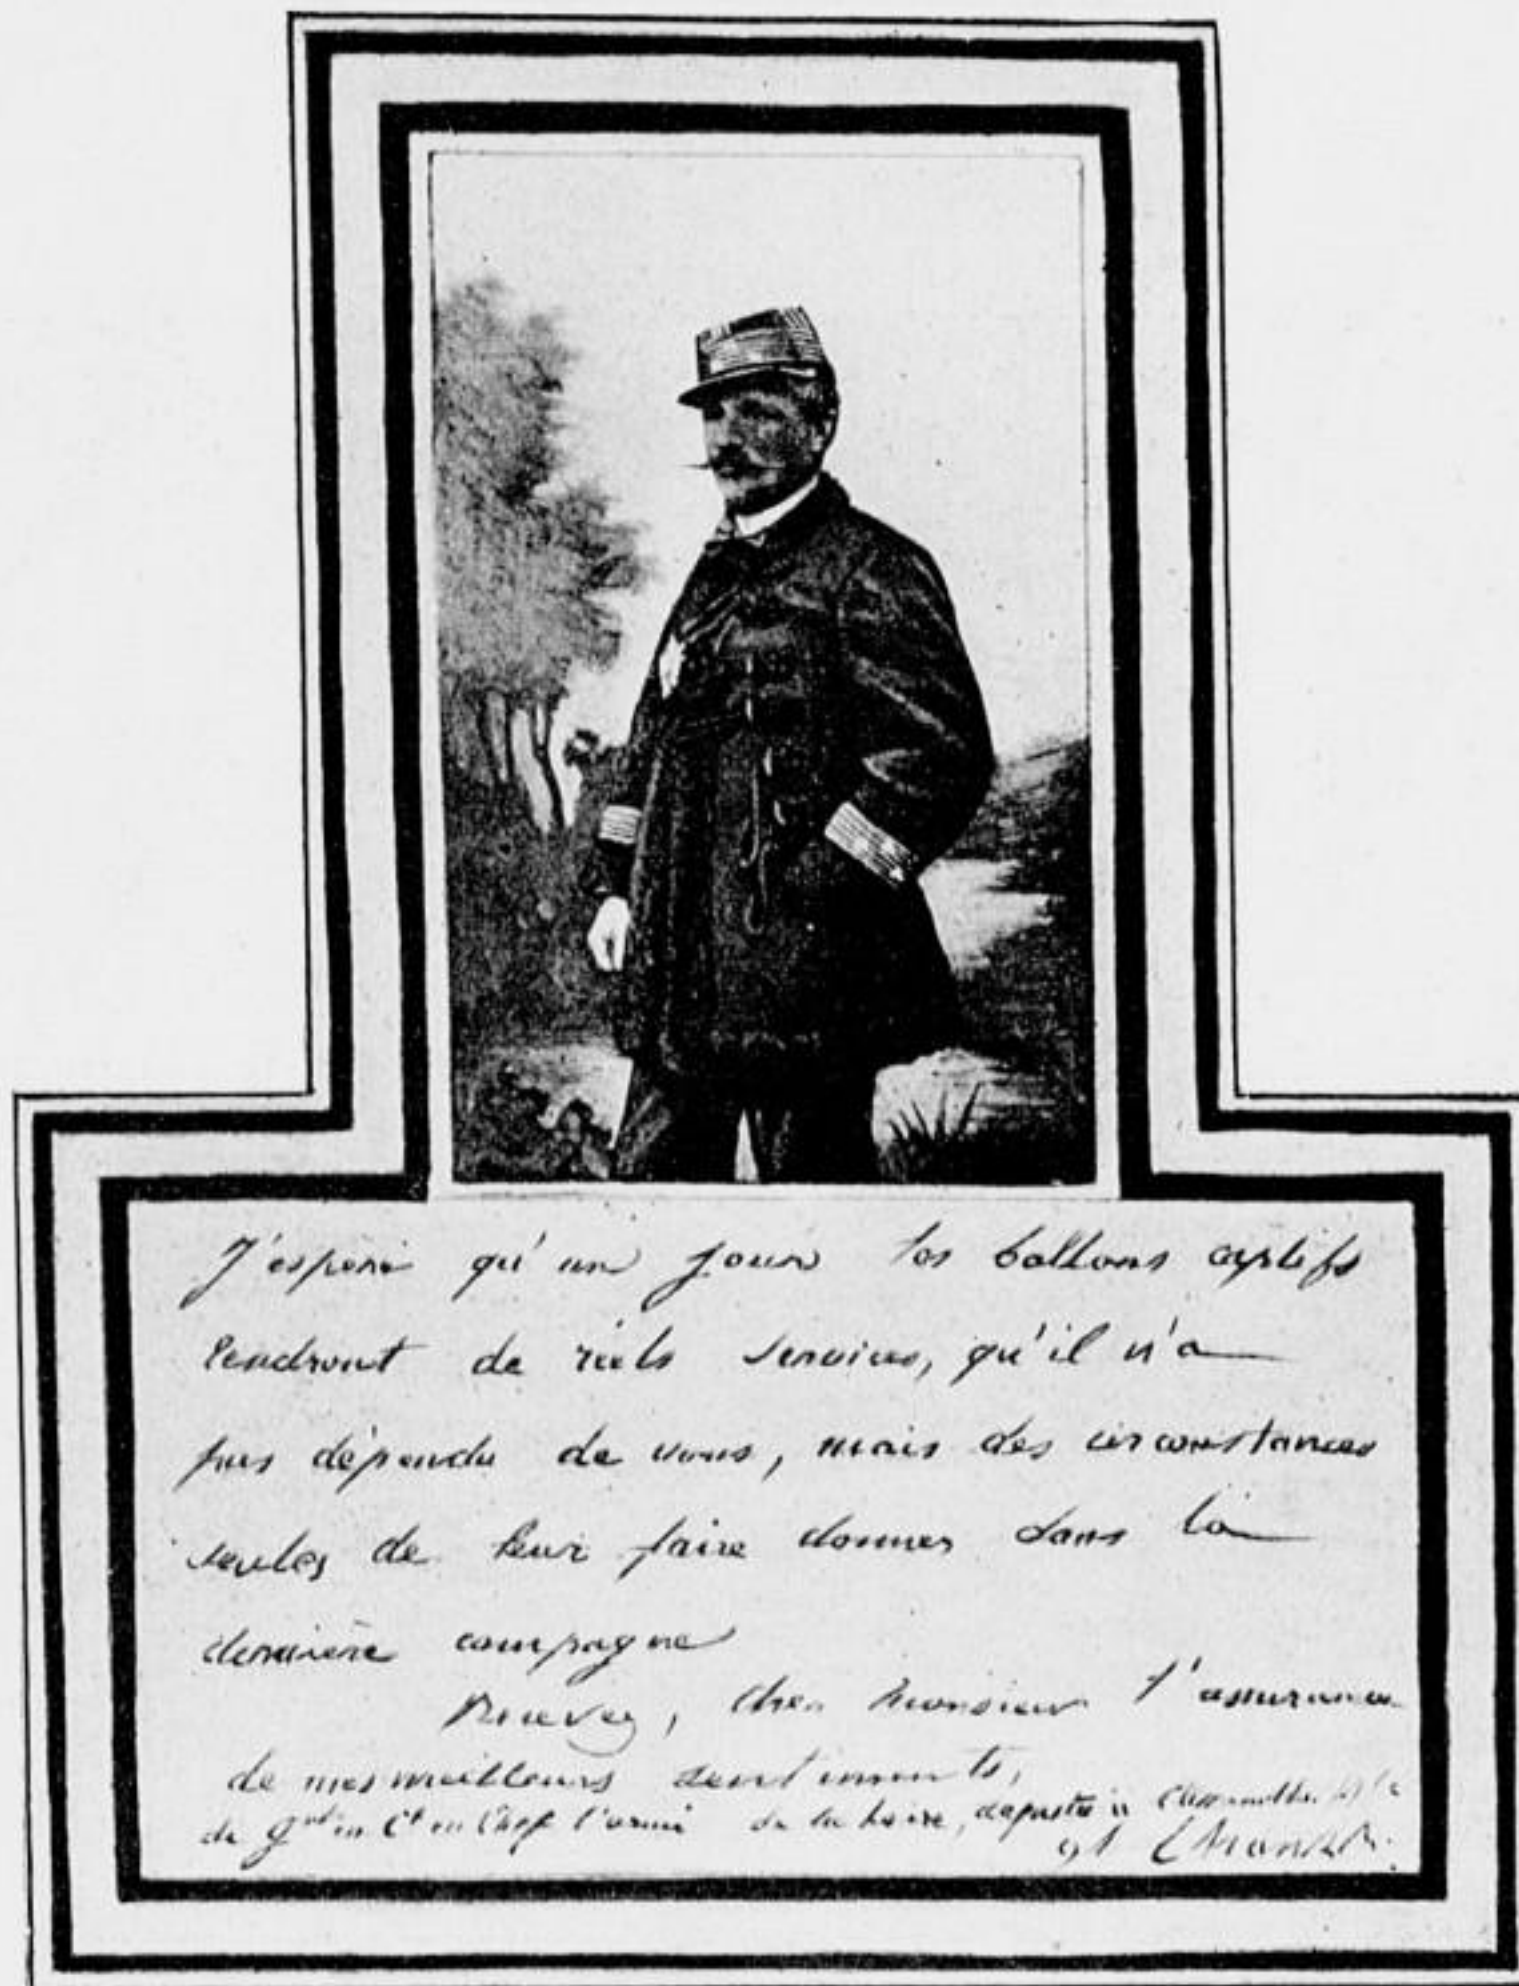 J'espère qu'un jour les ballons captifs
rendront de réels services, qu'il n'a
pas dépendu de vous, mais des circonstances
seules de leur faire donner dans la
dernière campagne
Recevez, cher Monsieur l'assurance
de mes meilleurs sentiments,
en Chef l'armée de la Loire, député à l'Assemblée